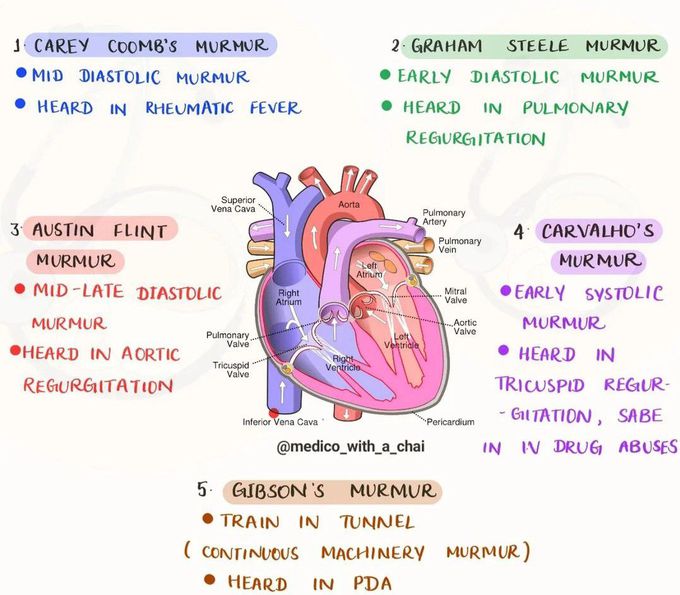 1. CAREY COOMB'S MURMUR
• MID DIASTOLIC MURMUR
• HEARD IN RHEUMATIC FEVER
2. GRAHAM STEELE MURMUR
• EARLY DIASTOLIC MURMUR
• HEARD IN PULMONARY
REGURGITATION
3. AUSTIN FLINT
MURMUR
• MID-LATE DIASTOLIC
MURMUR
• HEARD IN AORTIC
REGURGITATION
Superior
Vena Cava
Aorta
Pulmonary
Artery
Pulmonary
Vein
Left
Atrium
Right
Atrium
Mitral
Valve
Aortic
Valve
Left
Ventricle
Pulmonary
Valve
Tricuspid
Valve
Right
Ventricle
Inferior Vena Cava
Pericardium
@medico_with_a_chai
4. CARVALHO'S
MURMUR
• EARLY SYSTOLIC
MURMUR
• HEARD IN
TRICUSPID REGUR-
-GITATION, SABE
IN IV DRUG ABUSES
5. GIBSON'S MURMUR
• TRAIN IN TUNNEL
(CONTINUOUS MACHINERY MURMUR)
• HEARD IN PDA